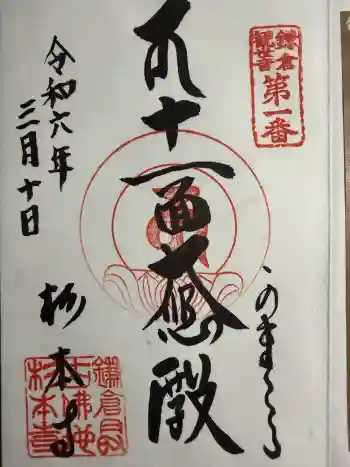 鎌倉
観世音
第一番
十一面大悲殿
令和六年
三月十日
杉本寺
鎌倉最
古佛地
杉本寺